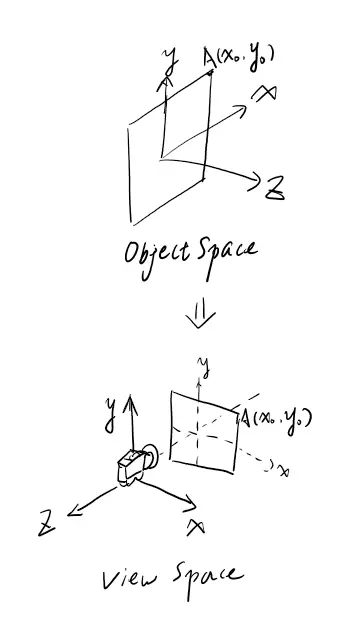 y A(x₀.y₀)
x
Z
Object Space
⇓
y
y A(x₀.y₀)
x
Z x
View Space